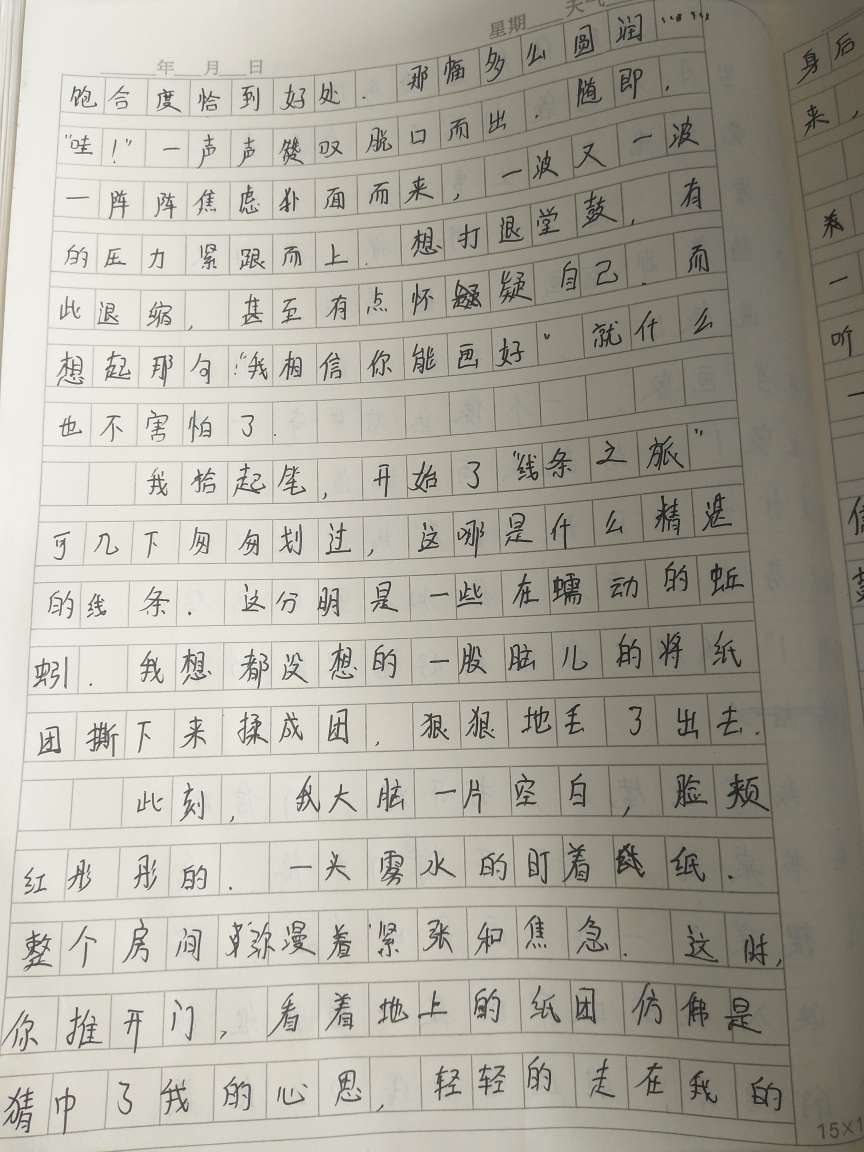 星期 天气
年 月 日
饱合度恰到好处.那幅多么圆润……
"哇!"一声声赞叹脱口而出.随即,
一阵阵焦虑扑面而来,一波又一波
的压力紧跟而上.想打退堂鼓,有
此退缩,甚至有点怀疑自己.而
想起那句:"我相信你能画好"就什么
也不害怕了.
我拾起笔,开始了"线条之旅"
可几下匆匆划过,这哪是什么精湛
的线条.这分明是一些在蠕动的蚯
蚓.我想都没想的一股脑儿的将纸
团撕下来揉成团,狠狠地丢了出去.
此刻,我大脑一片空白,脸颊
红彤彤的.一头雾水的盯着纸.
整个房间弥漫着紧张和焦急.这时,
你推开门,看着地上的纸团仿佛是
猜中了我的心思,轻轻的走在我的
15×1
身后
来,
一
听
一